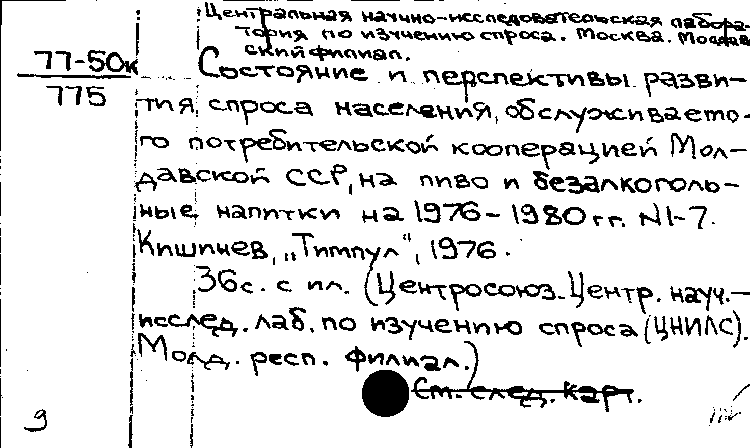 Центральная научно-исследовательская лабора-
тория по изучению спроса. Москва. Молдав
ский филиал.
77-50к
775
Состояние и перспективы разви-
тия спроса населения, обслуживаемо-
го потребительской кооперацией Мол-
давской ССР, на пиво и безалкоголь-
ные напитки на 1976-1980 гг. N1-7.
Кишинев, „Тимпул", 1976.
36с. с ил. (Центросоюз. Центр. науч.-
исслед. лаб. по изучению спроса (ЦНИЛС).
Молд. респ. филиал.)
См. след. карт.
9